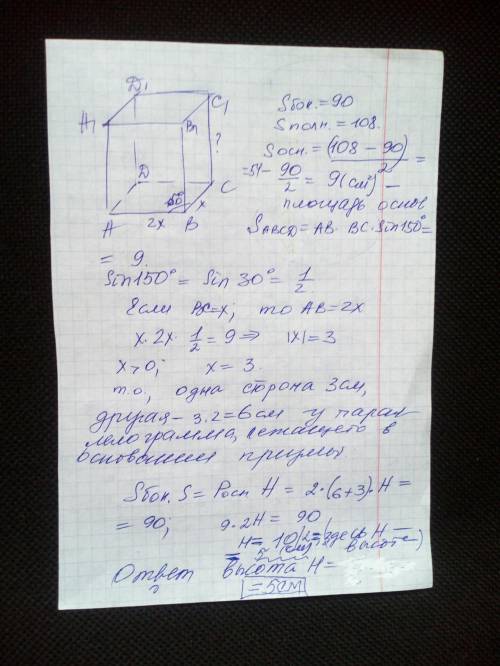 D₁
C₁
A₁
B₁
?
D
C
150°
x
A
2x
B
Sбок. = 90
Sполн. = 108.
Sосн. = (108 – 90)/2 =
= 54 – 90/2 = 9 (см²) –
площадь основ
SABCD = AB · BC · Sin 150° =
= 9.
Sin 150° = Sin 30° = 1/2
Если BC = x; то AB = 2x
x · 2x · 1/2 = 9 ⇒ |x| = 3
x > 0; x = 3.
т.о, одна сторона 3 см,
другая – 3·2 = 6 см у парал
лелограмма, лежащего в
основании призмы
Sбок. S = Pосн H = 2·(6+3)·H =
= 90; 9·2H = 90
H = 10/2 = (здесь H –
= 5 (см) высота)
Ответ высота H =
= 5 см